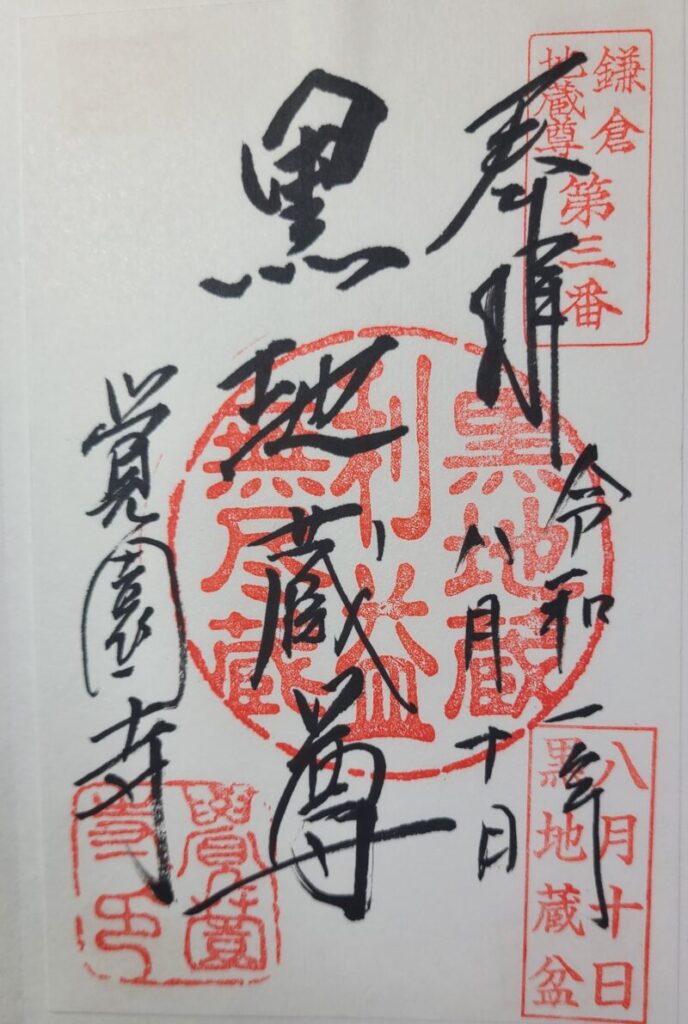 鎌倉
地蔵尊
第三番
奉拝
令和 年
八月十日
黒地蔵尊
覚園寺
黒地蔵
利益
無尽蔵
八月十日
黒地蔵盆
寺印